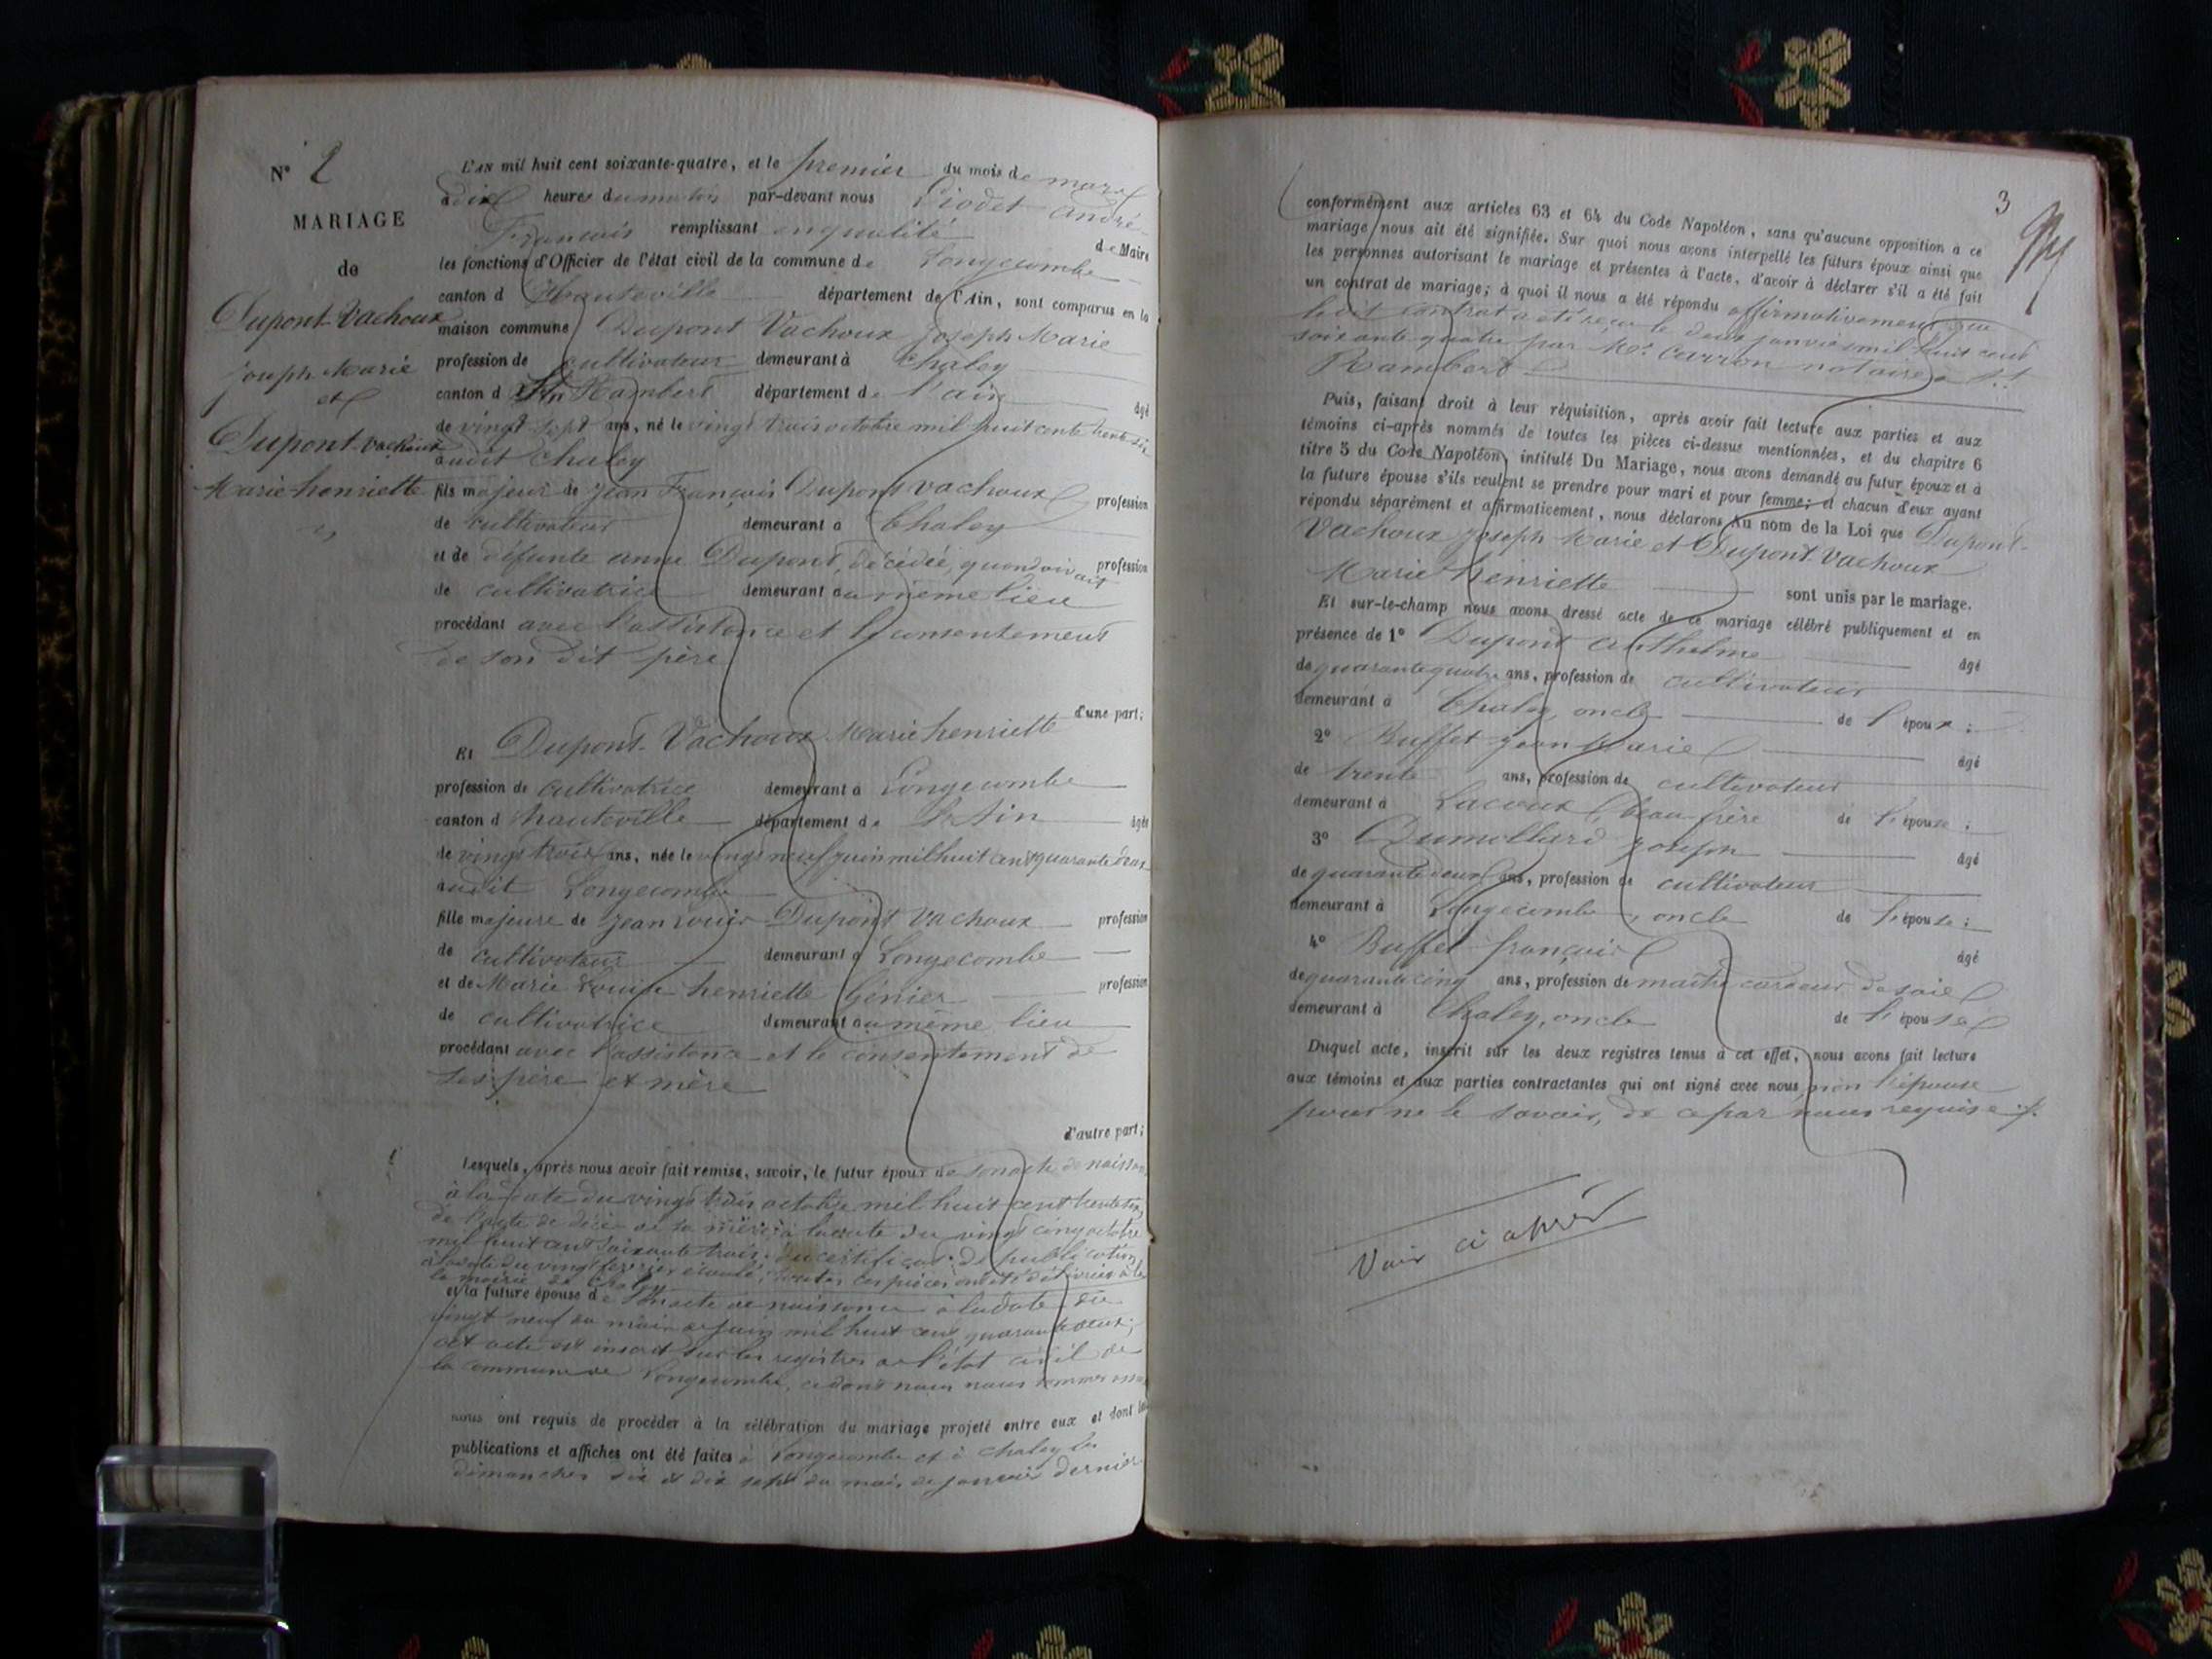 N° 2
MARIAGE
de
Dupont-Vachoux
Joseph Marie
et
Dupont-Vachoux
Marie henriette
L'AN mil huit cent soixante-quatre, et le premier du mois de mars
à dix heures du matin par-devant nous Liodet André
François remplissant en qualité de Maire
les fonctions d'Officier de l'état civil de la commune de Longecombe
canton d'hauteville département de l'Ain, sont comparus en la
maison commune Dupont Vachoux Joseph Marie
profession de cultivateur demeurant à Chaley
canton de St Rambert département de l'ain âgé
de vingt sept ans, né le vingt trois octobre mil huit cent trente six
audit Chaley
fils majeur de Jean François Dupont vachoux profession
de cultivateur demeurant à Chaley
et de défunte anne Dupont, décédée, quand vivait profession
de cultivatrice demeurant au même lieu
procédant avec l'assistance et le consentement
de son dit père
d'une part;
Et Dupont-Vachoux Marie henriette
profession de cultivatrice demeurant à Longecombe
canton d'hauteville département de L'Ain âgée
de vingt trois ans, née le vingt neuf juin mil huit cent quarante deux
audit Longecombe
fille majeure de Jean Louis Dupont Vachoux profession
de cultivateur demeurant à Longecombe
et de Marie Louise henriette Génier profession
de cultivatrice demeurant au même lieu
procédant avec l'assistance et le consentement de
ses père et mère
d'autre part;
Lesquels, après nous avoir fait remise, savoir, le futur époux de son acte de naissan
à la date du vingt trois octobre mil huit cent trente six,
de l'acte de décès de sa mère à la date du vingt cinq octobre
mil huit cent soixante trois, du certificat de publication
à la date du vingt février écoulé; toutes ces pièces ont été délivrées à la
la mairie de Chaley
et la future épouse de son acte de naissance à la date du
vingt neuf du mois de juin mil huit cent quarante deux;
cet acte est inscrit sur les registres de l'état civil de
la commune de Longecombe, ce dont nous nous sommes assu
nous ont requis de procéder à la célébration du mariage projeté entre eux et dont les
publications et affiches ont été faites à Longecombe et à Chaley les
dimanches dix et dix sept du mois de janvier dernier
3
conformément aux articles 63 et 64 du Code Napoléon, sans qu'aucune opposition à ce
mariage nous ait été signifiée. Sur quoi nous avons interpellé les futurs époux ainsi que
les personnes autorisant le mariage et présentes à l'acte, d'avoir à déclarer s'il a été fait
un contrat de mariage; à quoi il nous a été répondu affirmativement que
le dit contrat a été reçu le deux janvier mil huit cent
soixante quatre par Me Carron notaire à St
Rambert
Puis, faisant droit à leur réquisition, après avoir fait lecture aux parties et aux
témoins ci-après nommés de toutes les pièces ci-dessus mentionnées, et du chapitre 6
titre 5 du Code Napoléon, intitulé Du Mariage, nous avons demandé au futur époux et à
la future épouse s'ils veulent se prendre pour mari et pour femme; et chacun d'eux ayant
répondu séparément et affirmativement, nous déclarons Au nom de la Loi que Dupont-
Vachoux Joseph Marie et Dupont-Vachoux
Marie henriette sont unis par le mariage.
Et sur-le-champ nous avons dressé acte de ce mariage célébré publiquement et en
présence de 1° Dupont Anthelme âgé
de quarante quatre ans, profession de cultivateur
demeurant à Chaley, oncle de l'époux;
2° Buffet Jean Marie âgé
de trente ans, profession de cultivateur
demeurant à Lacoux, beau-frère de l'épouse;
3° Dumollard Joseph âgé
de quarante deux ans, profession de cultivateur
demeurant à Longecombe, oncle de l'épouse;
4° Buffet françois âgé
de quarante cinq ans, profession de maître cardeur de soie
demeurant à Chaley, oncle de l'épouse
Duquel acte, inscrit sur les deux registres tenus à cet effet, nous avons fait lecture
aux témoins et aux parties contractantes qui ont signé avec nous, non l'épouse
pour ne le savoir, de ce par nous requise
Voir ci après